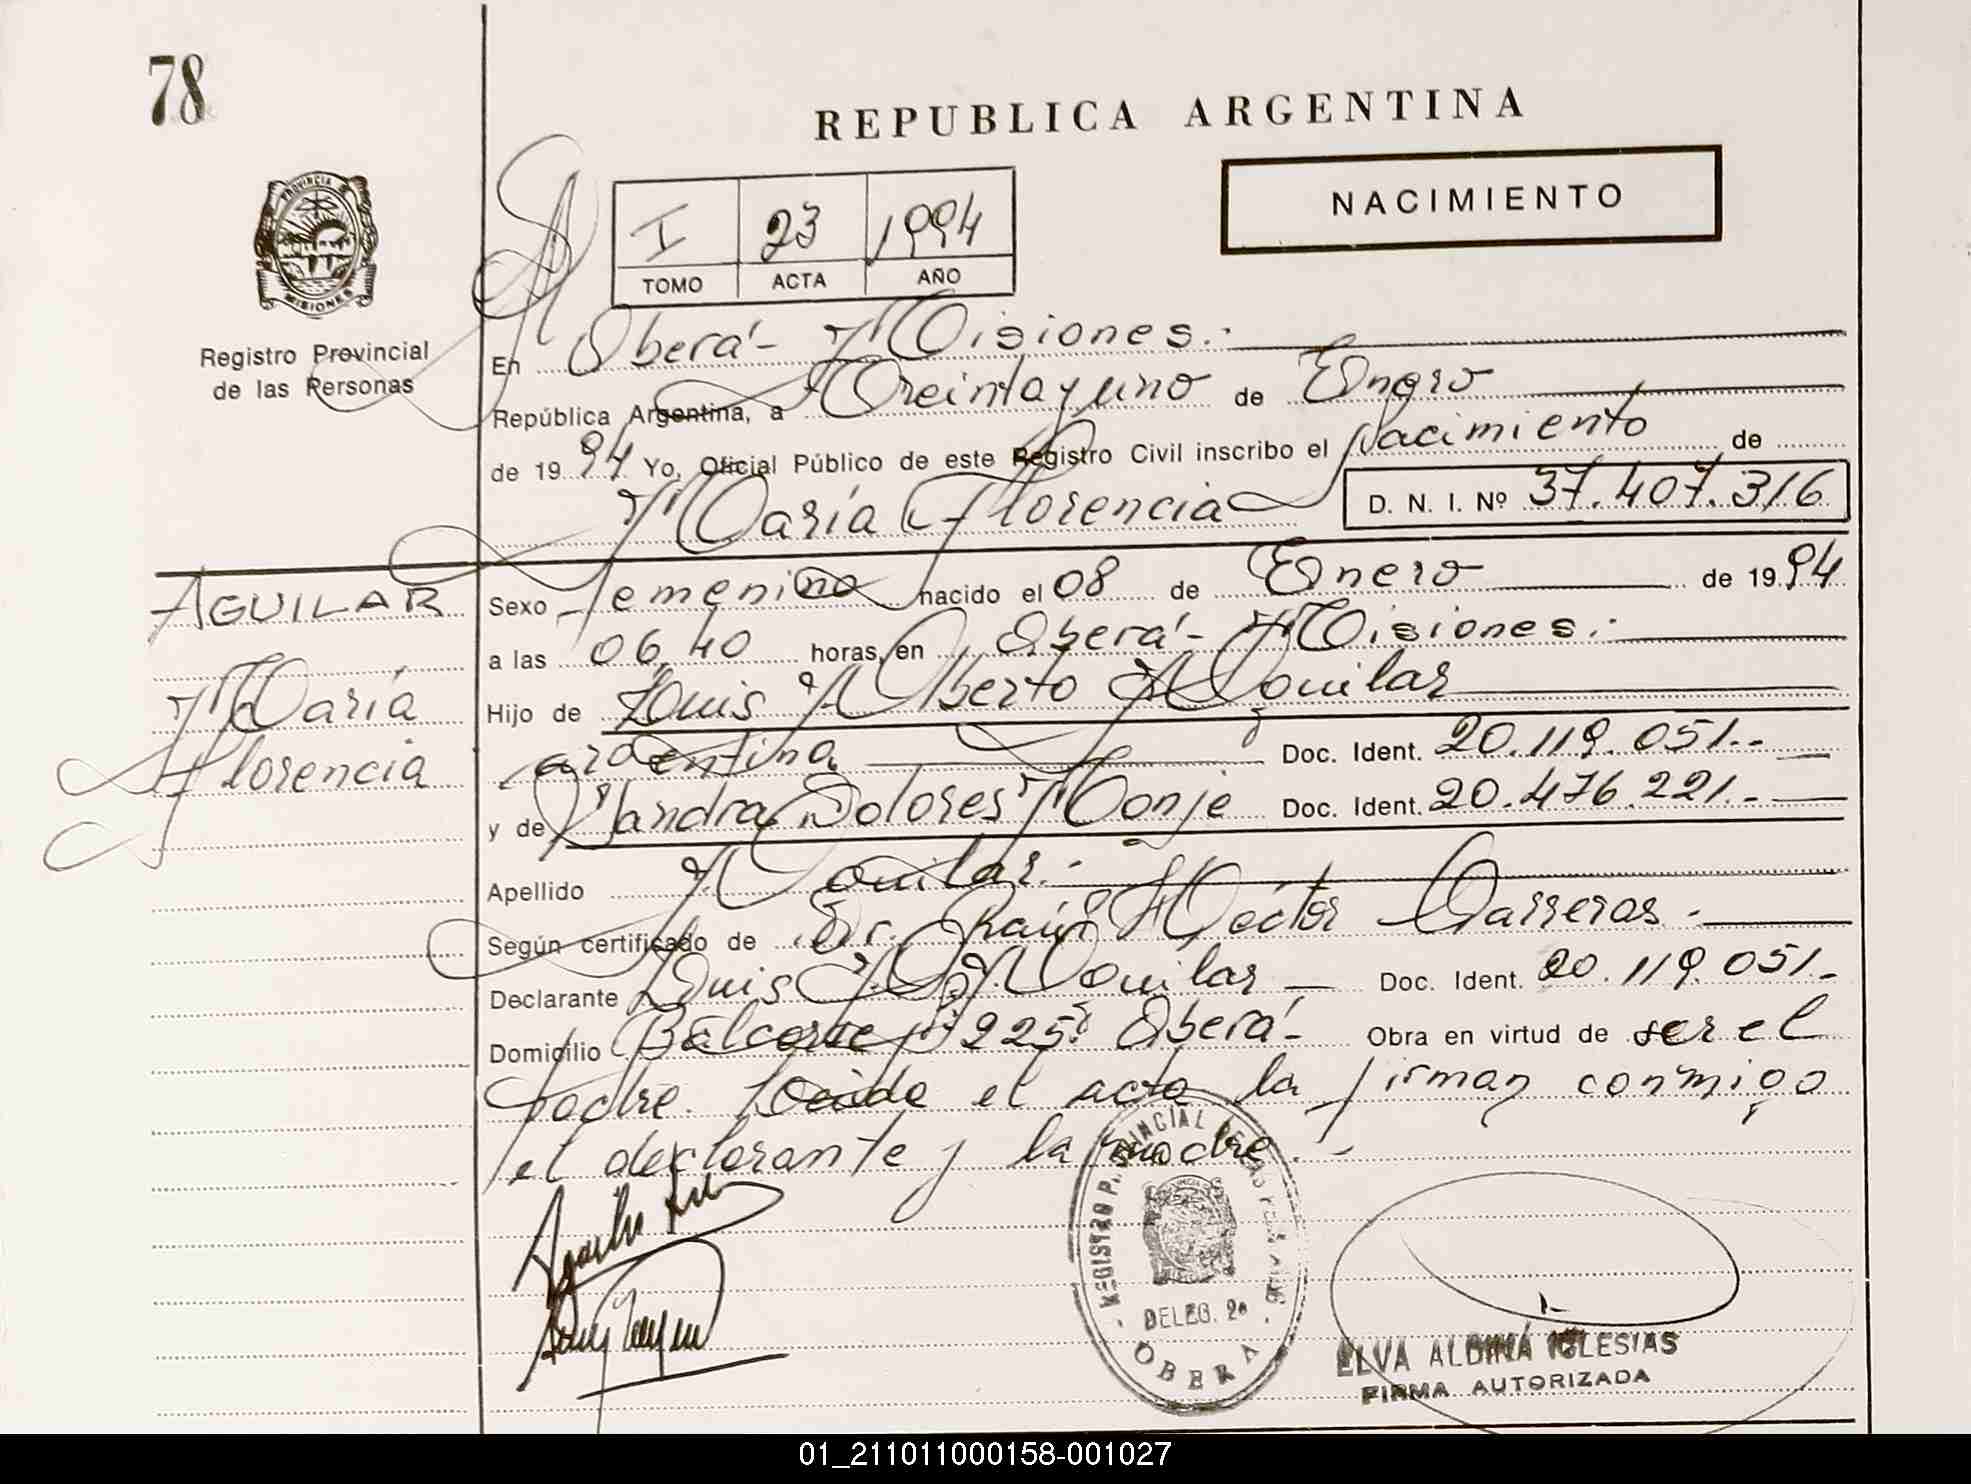 78
REPUBLICA ARGENTINA
NACIMIENTO
I 23 1994
TOMO ACTA AÑO
PROVINCIA
MISIONES
Registro Provincial
de las Personas
En Oberá - Misiones.-
República Argentina, a Treinta y uno de Enero
de 19 94 Yo, Oficial Público de este Registro Civil inscribo el Nacimiento de
María Florencia D. N. I. Nº 37.407.316
AGUILAR
María
Florencia
Sexo Femenino nacido el 08 de Enero de 19 94
a las 06,40 horas, en Oberá - Misiones.-
Hijo de Luis Alberto Aguilar
argentina Doc. Ident. 20.119.051.-
y de Sandra Dolores Monje Doc. Ident. 20.476.221.-
Apellido Aguilar.-
Según certificado de Dr. Raúl Héctor Carreras.-
Declarante Luis A. Aguilar Doc. Ident. 20.119.051.-
Domicilio Balcarce Nº 225 Oberá - Obra en virtud de ser el
padre. Leída el acta la firman conmigo
el declarante y la madre.-
REGISTRO PROVINCIAL DE LAS PERSONAS
DELEG. 2a
OBERA
ELVA ALDINA IGLESIAS
FIRMA AUTORIZADA
01_211011000158-001027